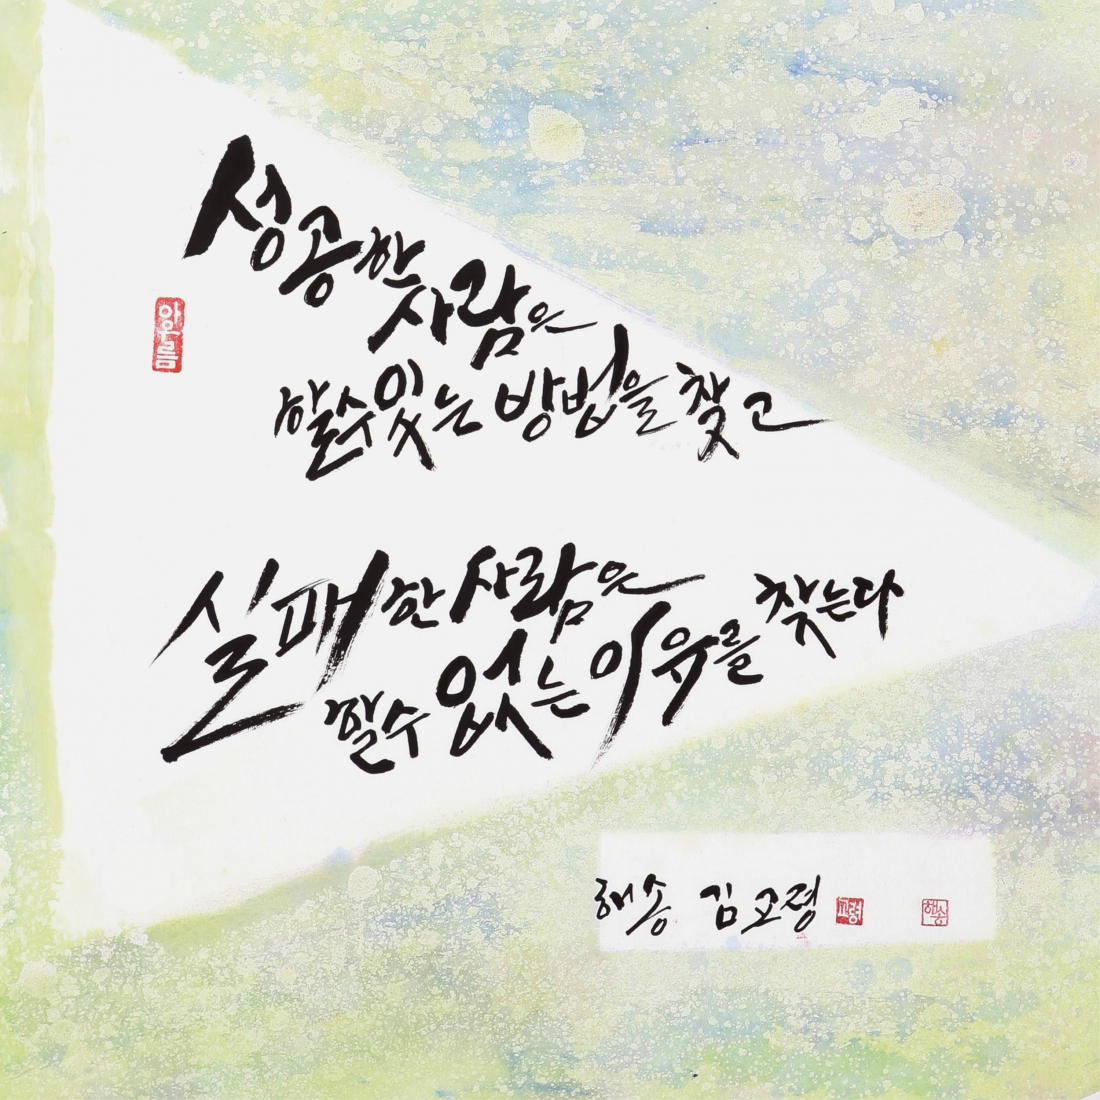 성공한
사람은
할수있는 방법을 찾고
아우름
실패한 사람은
할수 없는 이유를 찾는다
해송 김고령
고령
해송